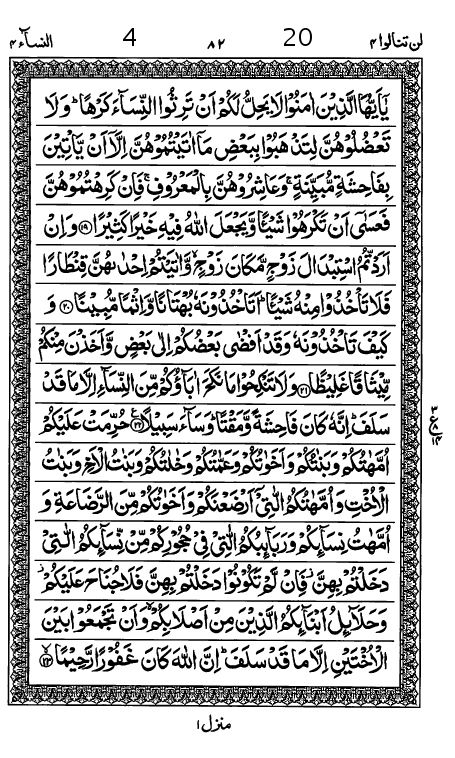 لن تنالوا ۴ 20 ۸۲ 4 النسآء ۴
يٰۤاَيُّهَا الَّذِيْنَ اٰمَنُوْا لَا يَحِلُّ لَكُمْ اَنْ تَرِثُوا النِّسَآءَ كَرْهًا ؕ وَ لَا
تَعْضُلُوْهُنَّ لِتَذْهَبُوْا بِبَعْضِ مَاۤ اٰتَيْتُمُوْهُنَّ اِلَّاۤ اَنْ يَّاْتِيْنَ
بِفَاحِشَةٍ مُّبَيِّنَةٍ ۚ وَعَاشِرُوْهُنَّ بِالْمَعْرُوْفِ ۚ فَاِنْ كَرِهْتُمُوْهُنَّ
فَعَسٰۤى اَنْ تَكْرَهُوْا شَيْـًٔا وَّيَجْعَلَ اللّٰهُ فِيْهِ خَيْرًا كَثِيْرًا ۱۹ وَاِنْ
اَرَدْتُّمُ اسْتِبْدَالَ زَوْجٍ مَّكَانَ زَوْجٍ ۙ وَّاٰتَيْتُمْ اِحْدٰىهُنَّ قِنْطَارًا
فَلَا تَاْخُذُوْا مِنْهُ شَيْـًٔا ؕ اَتَاْخُذُوْنَهٗ بُهْتَانًا وَّاِثْمًا مُّبِيْنًا ۲۰ وَ
كَيْفَ تَاْخُذُوْنَهٗ وَقَدْ اَفْضٰى بَعْضُكُمْ اِلٰى بَعْضٍ وَّاَخَذْنَ مِنْكُمْ
مِّيْثَاقًا غَلِيْظًا ۲۱ وَلَا تَنْكِحُوْا مَا نَكَحَ اٰبَآؤُكُمْ مِّنَ النِّسَآءِ اِلَّا مَا قَدْ
سَلَفَ ؕ اِنَّهٗ كَانَ فَاحِشَةً وَّمَقْتًا ؕ وَسَآءَ سَبِيْلًا ۲۲ حُرِّمَتْ عَلَيْكُمْ
اُمَّهٰتُكُمْ وَبَنٰتُكُمْ وَاَخَوٰتُكُمْ وَعَمّٰتُكُمْ وَخٰلٰتُكُمْ وَبَنٰتُ الْاَخِ وَبَنٰتُ
الْاُخْتِ وَاُمَّهٰتُكُمُ الّٰتِيْۤ اَرْضَعْنَكُمْ وَاَخَوٰتُكُمْ مِّنَ الرَّضَاعَةِ وَ
اُمَّهٰتُ نِسَآئِكُمْ وَرَبَآئِبُكُمُ الّٰتِيْ فِيْ حُجُوْرِكُمْ مِّنْ نِّسَآئِكُمُ الّٰتِيْ
دَخَلْتُمْ بِهِنَّ ؗ فَاِنْ لَّمْ تَكُوْنُوْا دَخَلْتُمْ بِهِنَّ فَلَا جُنَاحَ عَلَيْكُمْ ؗ
وَحَلَآئِلُ اَبْنَآئِكُمُ الَّذِيْنَ مِنْ اَصْلَابِكُمْ ۙ وَاَنْ تَجْمَعُوْا بَيْنَ
الْاُخْتَيْنِ اِلَّا مَا قَدْ سَلَفَ ؕ اِنَّ اللّٰهَ كَانَ غَفُوْرًا رَّحِيْمًا ۲۳
۳
ع
۱۴
منزل ۱